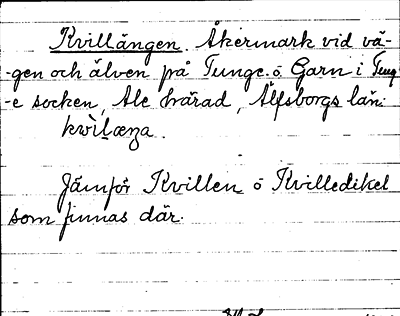 Kvillängen. Åkermark vid vä-
-gen och älven på Tunge. o. Garn i Tung
-e socken, Ale härad, Älfsborgs län.
kwìlæŋa.
Jämför Kvillen o Kvilledikel
som finnas där.